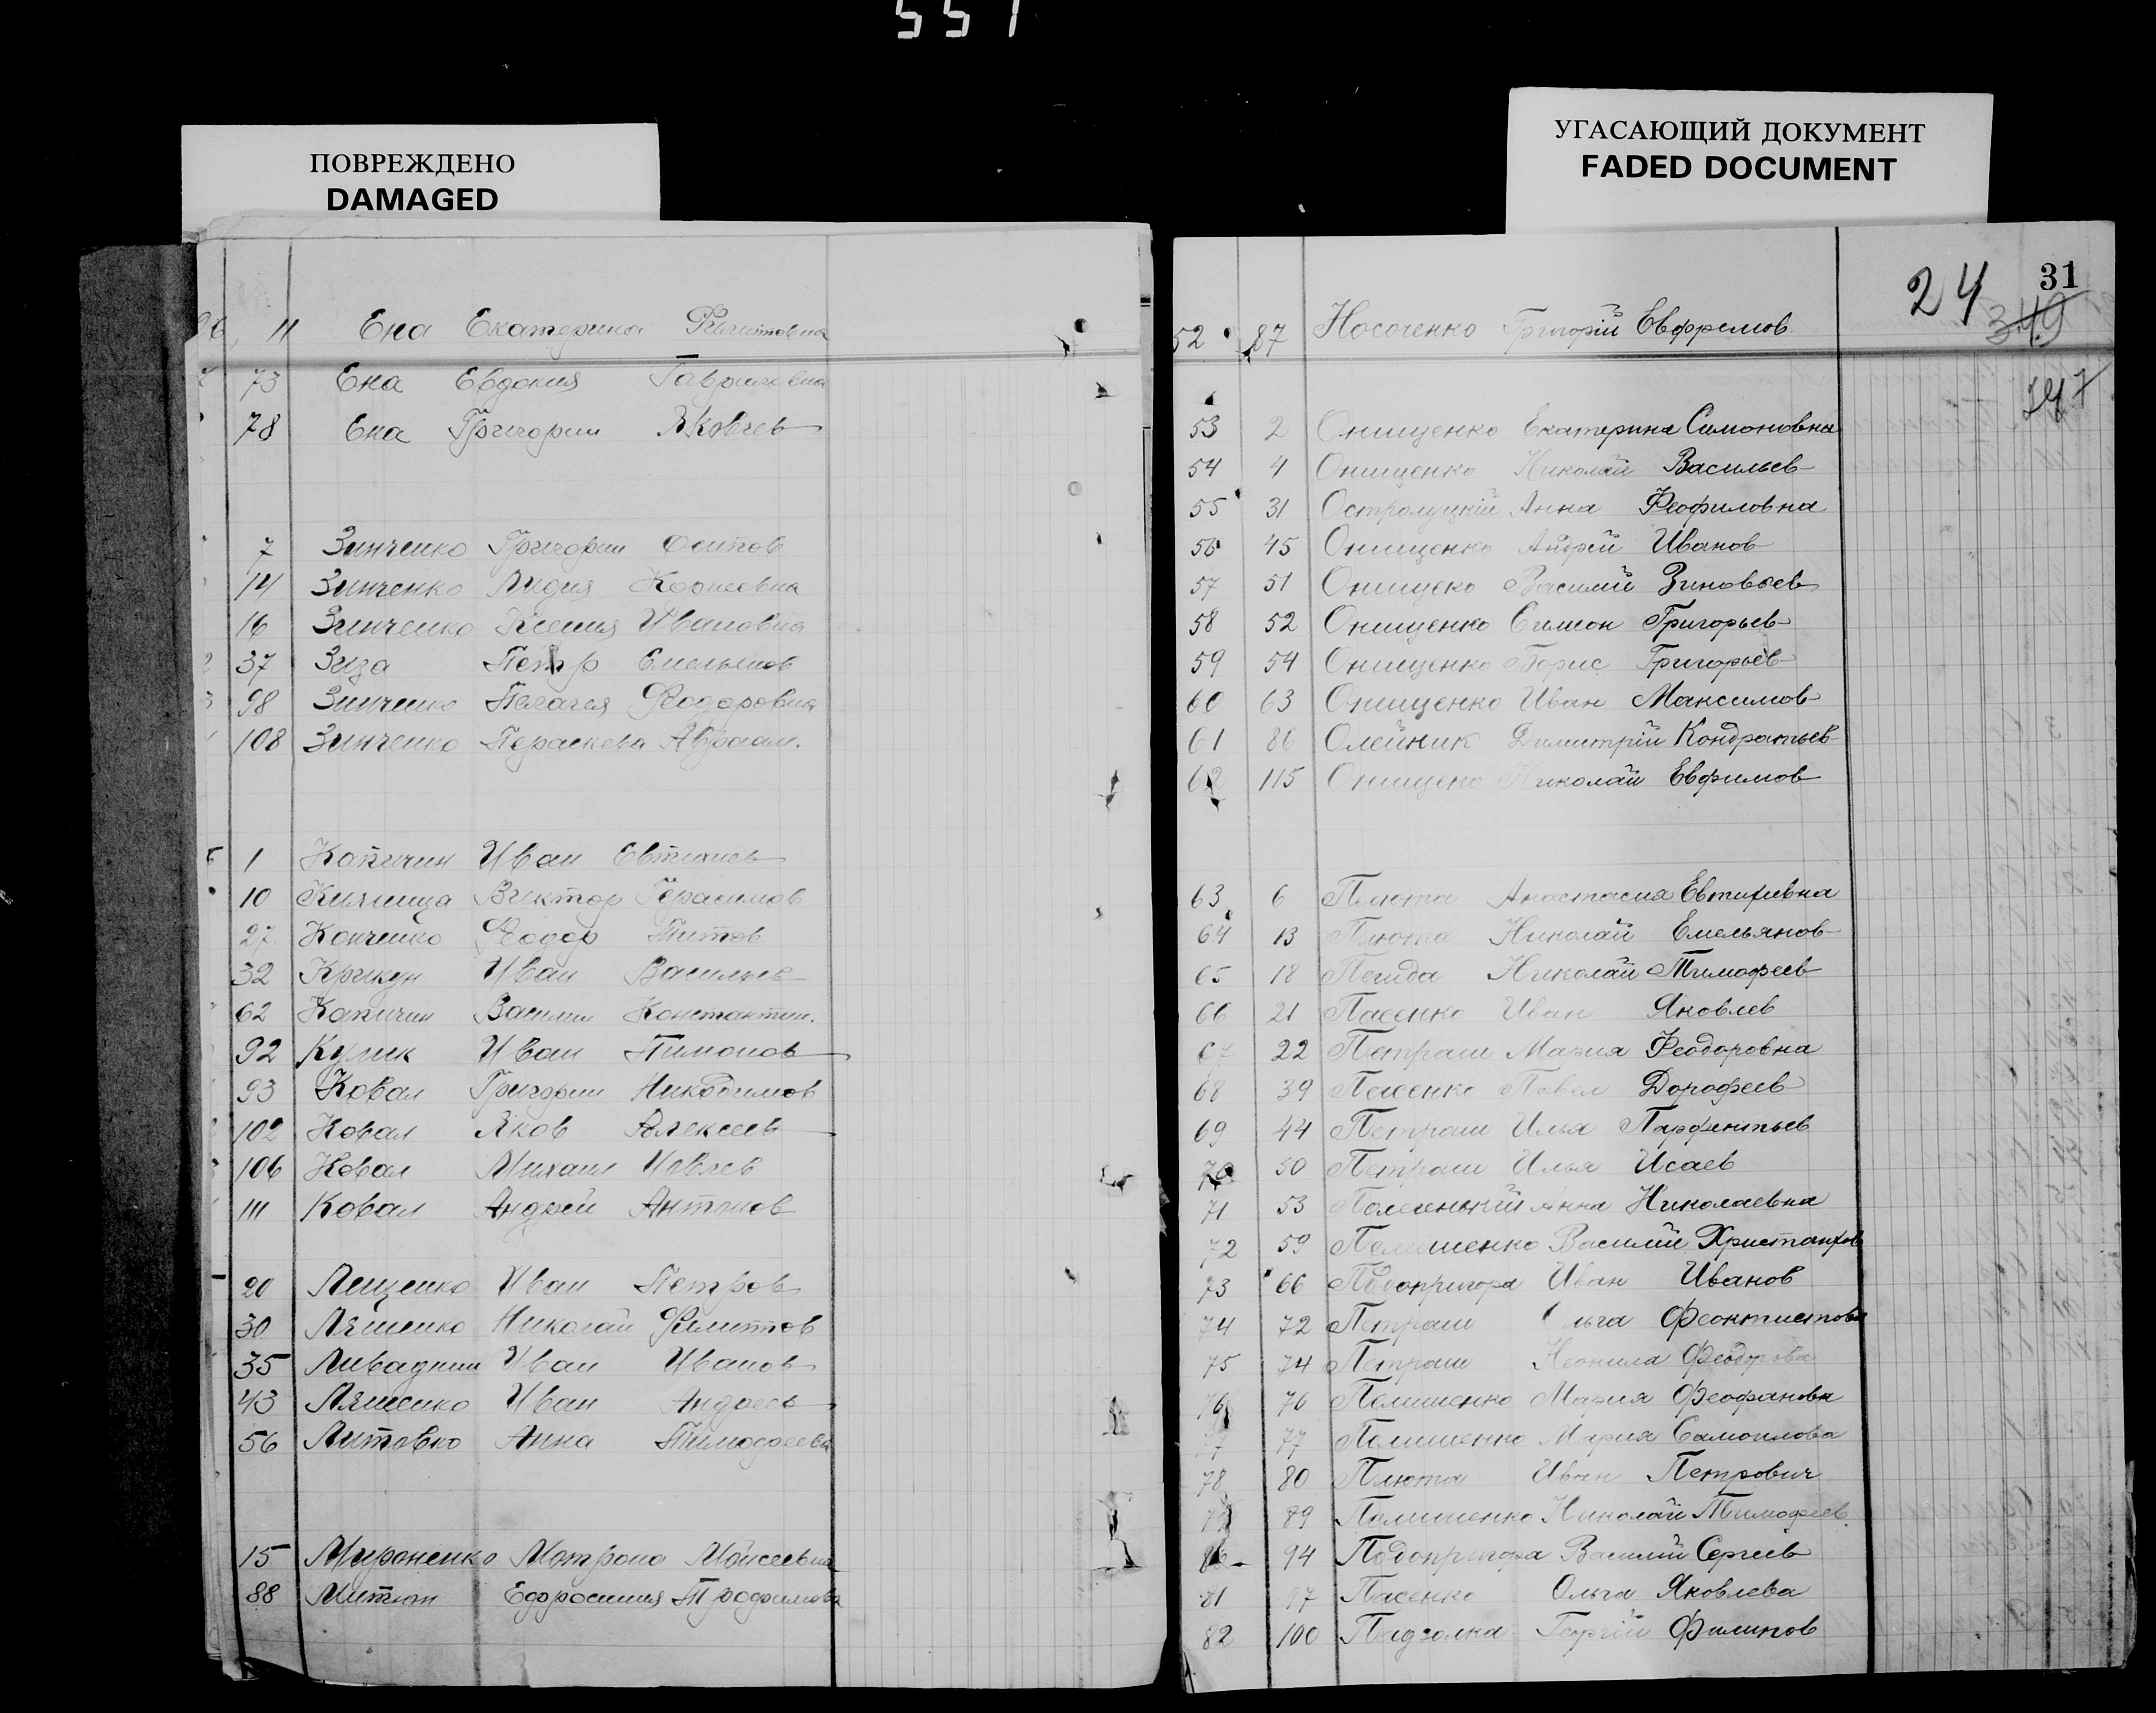 551
ПОВРЕЖДЕНО
DAMAGED
УГАСАЮЩИЙ ДОКУМЕНТ
FADED DOCUMENT
11 Ена Екатерина Филиповна
73 Ена Евдокия Гавриловна
78 Ена Григорий Яковлев
7 Зинченко Григорий Осипов
14 Зинченко Лидия Корнеевна
16 Зинченко Ксения Ивановна
37 Зиза Петр Емельянов
98 Зинченко Пелагея Феодоровна
108 Зинченко Параскева Авраам.
1 Капичин Иван Евтихиев
10 Виктор Герасимов
27 Конченко Феодор Титов
32 Крикун Иван Васильев
62 Капичин Василий Константин.
92 Кулик Иван Тимонов
93 Ковал Григорий Никодимов
102 Ковал Яков Алексеев
106 Ковал Михаил Иовлев
111 Ковал Андрей Антонов
20 Лещенко Иван Петров
30 Ляшенко Николай Филиппов
35 Ливадний Иван Иванов
43 Ляшенко Иван Андреев
56 Литовко Анна Тимофеева
15 Мироненко Матрона Моисеевна
88 Митюн Ефросиния Трофимова
24 31
349
347
52 87 Носоченко Григорій Евфремов
53 2 Онищенко Екатерина Симоновна
54 4 Онищенко Николай Васильев
55 31 Остролуцкій Анна Феофиловна
56 45 Онищенко Андрей Иванов
57 51 Онищеко Василий Зиновьев
58 52 Онищенко Симеон Григорьев
59 54 Онищенко Борис Григорьев
60 63 Онищенко Иван Максимов
61 86 Олейник Димитрій Кондратьев
62 115 Онищеко Николай Евфимов
63 6 Плюта Анастасия Евтифиевна
64 13 Плюта Николай Емельянов
65 18 Николай Тимофеев
66 21 Пасенко Иван Яковлев
67 22 Петраш Мария Феодоровна
68 39 Пасенко Павел Дорофеев
69 44 Петраш Илья Парфентьев
70 50 Петраш Илья Исаев
71 53 Анна Николаевна
72 59 Василий Христанфов
73 66 Подопригора Иван Иванов
74 72 Петраш Ольга Феоктистова
75 74 Петраш Неонила Феодорова
76 76 Полишенко Мария Феофанова
77 77 Полишенко Мария Самоилова
78 80 Плюта Иван Петрович
79 89 Полишенко Николай Тимофеев.
80 94 Подопригора Василий Сергеев
81 97 Пасенко Ольга Яковлева
82 100 Георгій Филипов